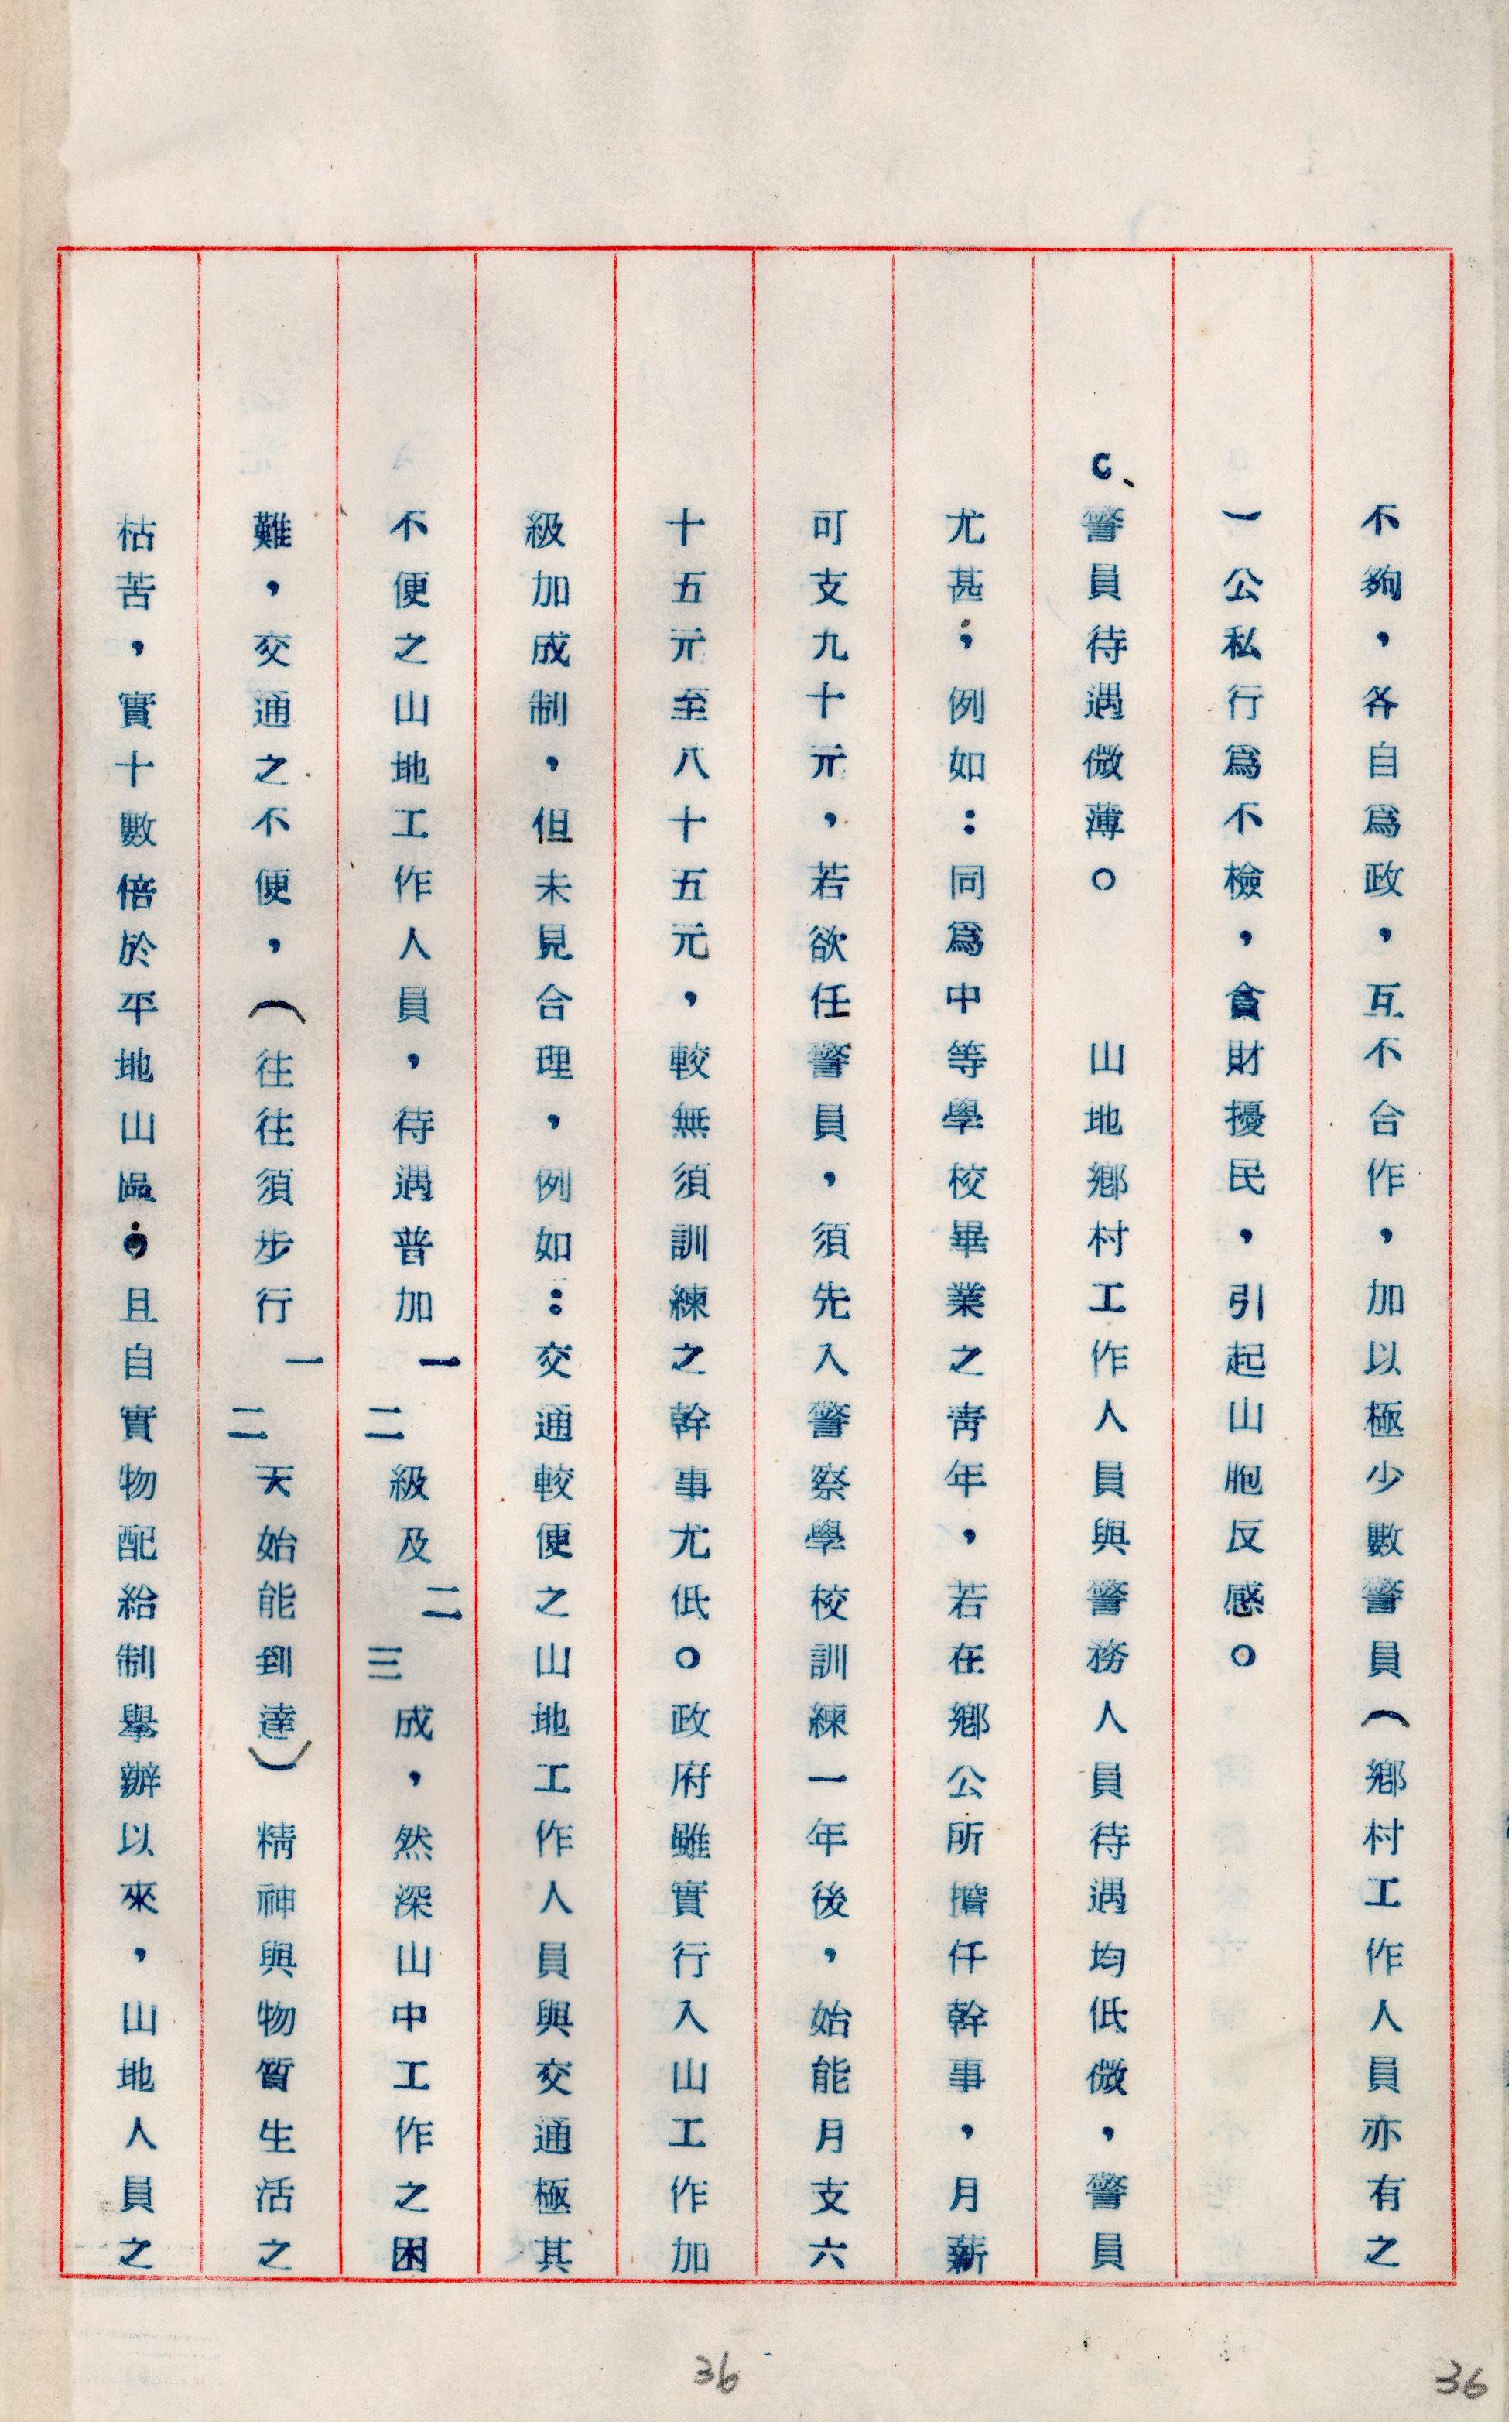 不夠，各自爲政，互不合作，加以極少數警員（鄉村工作人員亦有之
）公私行爲不檢，貪財擾民，引起山胞反感。
C、警員待遇微薄。　山地鄉村工作人員與警務人員待遇均低微，警員
尤甚；例如：同爲中等學校畢業之靑年，若在鄉公所擔仟幹事，月薪
可支九十元，若欲任警員，須先入警察學校訓練一年後，始能月支六
十五元至八十五元，較無須訓練之幹事尤低。政府雖實行入山工作加
級加成制，但未見合理，例如：交通較便之山地工作人員與交通極其
不便之山地工作人員，待遇普加一二級及二三成，然深山中工作之困
難，交通之不便，（往往須步行一二天始能到達）精神與物質生活之
枯苦，實十數倍於平地山區；且自實物配給制舉辦以來，山地人員之
36
36